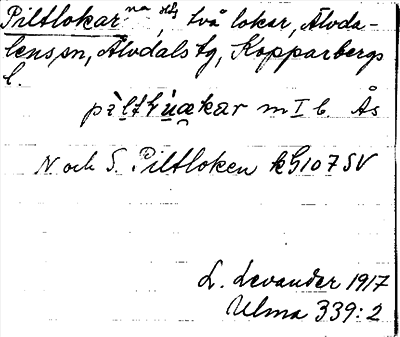 Piltlokarna, två lokar, Älvda-
lens sn, Älvdals tg, Kopparbergs
l.
pìltlùækar m I b. Ås
N och S. Piltloken kG107SV
L. Levander 1917
Ulma 339:2